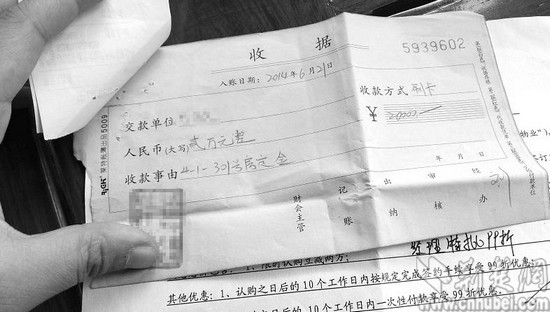 收据
5939602
入账日期：2014年6月21日
交款单位
收款方式 刷卡
人民币(大写) 贰万元整
¥ 20000
收款事由 4-1-301号房定金
年 月 日
财会主管
记账
出纳
审核
经办
经理特批99折
其他优惠：1、认购之日后的10个工作日内按规定完成签约手续享受99折优惠：
之日后的10个工作日内一次性付款享受99折优惠：
www.cnhubei.com